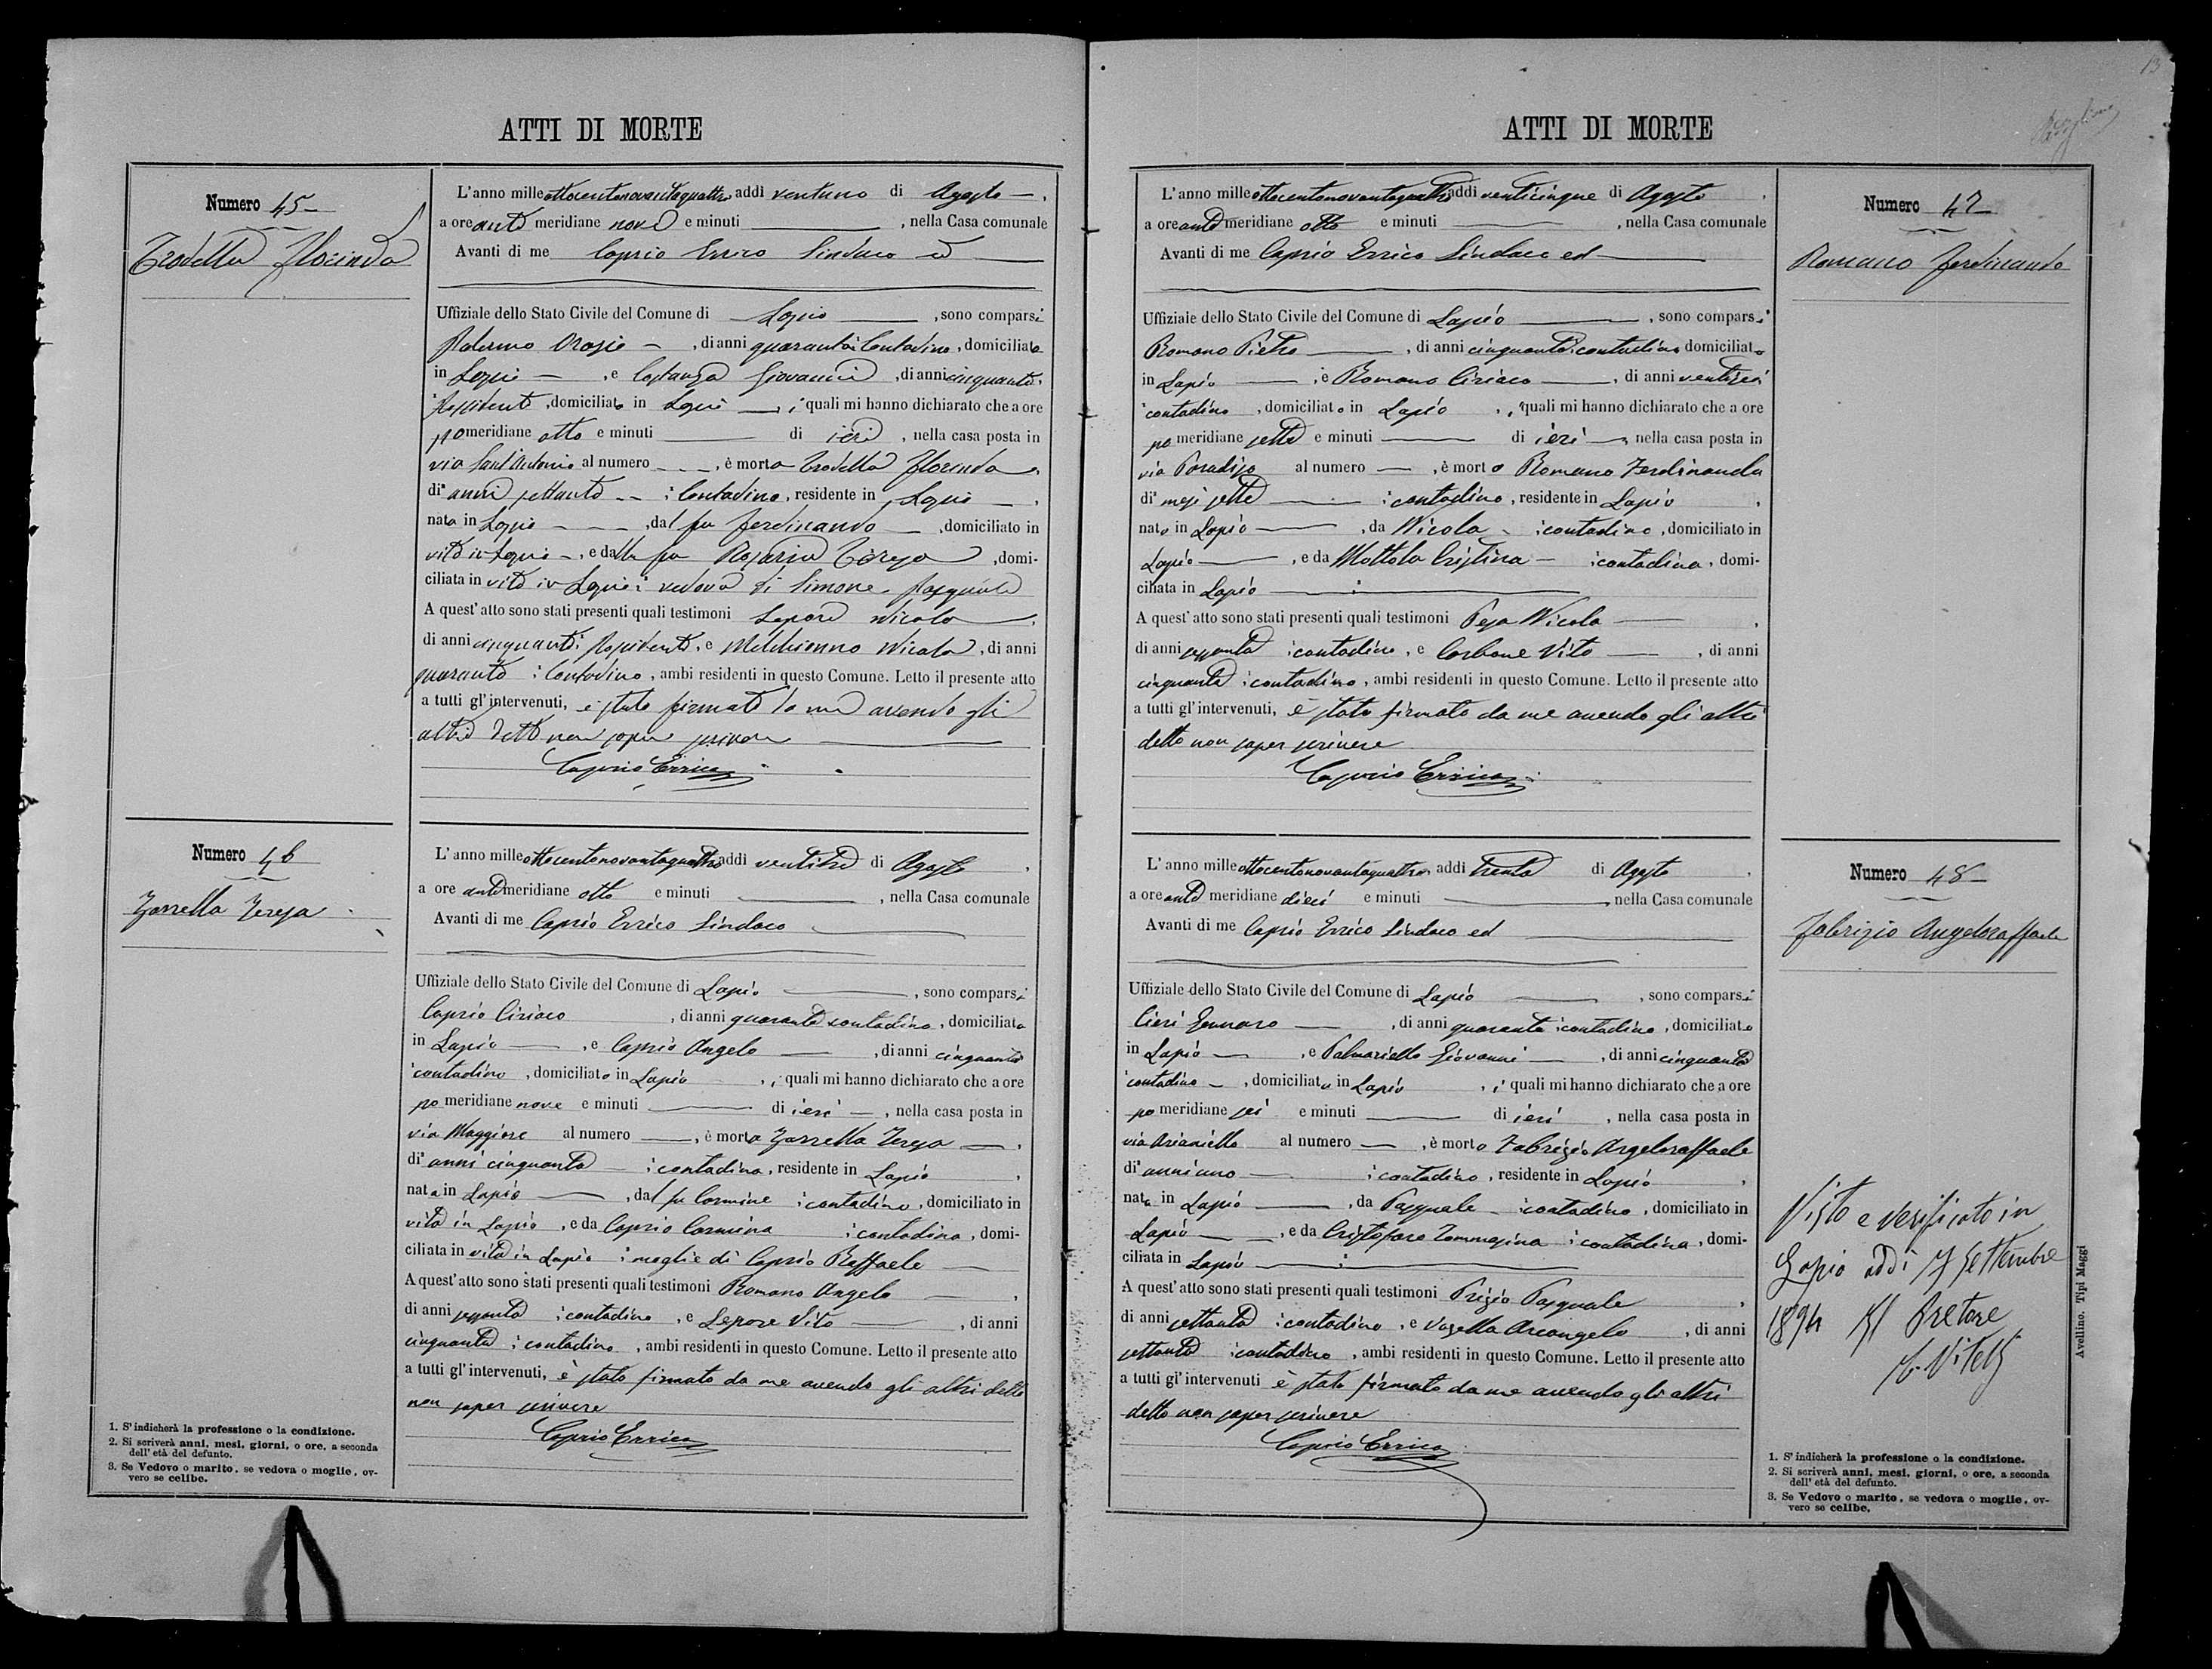 ATTI DI MORTE
Numero 45
Trodella Florinda
L'anno milleottocentonovantaquattro, addì ventuno di Agosto
a ore anti meridiane nove e minuti , nella Casa comunale
Avanti di me Caprio Errico Sindaco ed
Uffiziale dello Stato Civile del Comune di Lapio , sono comparsi
Palermo Orazio , di anni quaranta Contadino, domiciliato
in Lapio , e Costanza Giovanni , di anni cinquanta
Possidente , domiciliato in Lapio , i quali mi hanno dichiarato che a ore
po meridiane otto e minuti di ieri , nella casa posta in
via Sant'Antonio al numero , è morta Trodella Florinda
di anni settanta ; Contadina, residente in Lapio
nata in Lapio , dal fu Ferdinando , domiciliato in
vita in Lapio , e dalla fu Rosaria , domi-
ciliata in vita in Lapio; vedova di Simone Pasquale
A quest' atto sono stati presenti quali testimoni Lepore Nicola
di anni cinquanta; Possidente, e Melchionno Nicola, di anni
quaranta ; Contadino, ambi residenti in questo Comune. Letto il presente atto
a tutti gl'intervenuti, è stato firmato da me avendo gli
altri detto non saper scrivere
Caprio Errico
Numero 46
Zarrella Teresa
L'anno milleottocentonovantaquattro, addì ventitre di Agosto
a ore antimeridiane otto e minuti , nella Casa comunale
Avanti di me Caprio Errico Sindaco
Uffiziale dello Stato Civile del Comune di Lapio , sono comparsi
Caprio Ciriaco , di anni quaranta contadino, domiciliato
in Lapio , e Caprio Angelo , di anni cinquanta
contadino , domiciliato in Lapio , i quali mi hanno dichiarato che a ore
po meridiane nove e minuti di ieri , nella casa posta in
via Maggiore al numero , è morta Zarrella Teresa
di anni cinquanta ; contadina, residente in Lapio
nata in Lapio , dal fu Carmine ; contadino, domiciliato in
vita in Lapio , e da Caprio Carmina ; contadina , domi-
ciliata in vita in Lapio ; moglie di Caprio Raffaele
A quest' atto sono stati presenti quali testimoni Romano Angelo
di anni sessanta ; contadino , e Lepore Vito , di anni
cinquanta ; contadino , ambi residenti in questo Comune. Letto il presente atto
a tutti gl'intervenuti, è stato firmato da me avendo gli altri detto
non saper scrivere
Caprio Errico
1. S'indicherà la professione o la condizione.
2. Si scriverà anni, mesi, giorni, o ore, a seconda
dell' età del defunto.
3. Se Vedovo o marito, se vedova o moglie, ov-
vero se celibe.
13
ATTI DI MORTE
Numero 47
Romano Ferdinando
L'anno milleottocentonovantaquattro, addì venticinque di Agosto
a ore antimeridiane otto e minuti , nella Casa comunale
Avanti di me Caprio Errico Sindaco ed
Uffiziale dello Stato Civile del Comune di Lapio , sono comparsi
Romano Pietro , di anni cinquanta; contadino domiciliato
in Lapio , e Romano Ciriaco , di anni ventisei
contadino , domiciliato in Lapio , i quali mi hanno dichiarato che a ore
po meridiane sette e minuti di ieri , nella casa posta in
via Paradiso al numero , è morto Romano Ferdinando
di mesi sette ; contadino, residente in Lapio
nato in Lapio , da Nicola ; contadino, domiciliato in
Lapio , e da Mottola Cristina ; contadina, domi-
ciliata in Lapio
A quest' atto sono stati presenti quali testimoni Pesa Nicola
di anni sessanta ; contadino, e Carbone Vito , di anni
cinquanta ; contadino, ambi residenti in questo Comune. Letto il presente atto
a tutti gl'intervenuti, è stato firmato da me avendo gli altri
detto non saper scrivere
Caprio Errico
Numero 48
Fabrizio Angeloraffaele
L'anno milleottocentonovantaquattro, addì trenta di Agosto
a ore anti meridiane dieci e minuti , nella Casa comunale
Avanti di me Caprio Errico Sindaco ed
Uffiziale dello Stato Civile del Comune di Lapio , sono comparsi
Cieri Gennaro , di anni quaranta ; contadino, domiciliato
in Lapio , e Palmariello Giovanni , di anni cinquanta
contadino , domiciliato in Lapio , i quali mi hanno dichiarato che a ore
po meridiane sei e minuti di ieri , nella casa posta in
via Arianiello al numero , è morto Fabrizio Angeloraffaele
di anni uno ; contadino, residente in Lapio
nato in Lapio , da Pasquale ; contadino, domiciliato in
Lapio , e da Cristofaro Tommasina ; contadina, domi-
ciliata in Lapio
A quest' atto sono stati presenti quali testimoni Prizio Pasquale
di anni settanta ; contadino, e Vasella Arcangelo , di anni
settanta ; contadino , ambi residenti in questo Comune. Letto il presente atto
a tutti gl'intervenuti è stato firmato da me avendo gli altri
detto non saper scrivere
Caprio Errico
Visto e verificato in
Lapio addì 7 Settembre
1894 Il Pretore
Avellino. Tipi Maggi
1. S'indicherà la professione o la condizione.
2. Si scriverà anni, mesi, giorni, o ore, a seconda
dell' età del defunto.
3. Se Vedovo o marito, se vedova o moglie, ov-
vero se celibe.